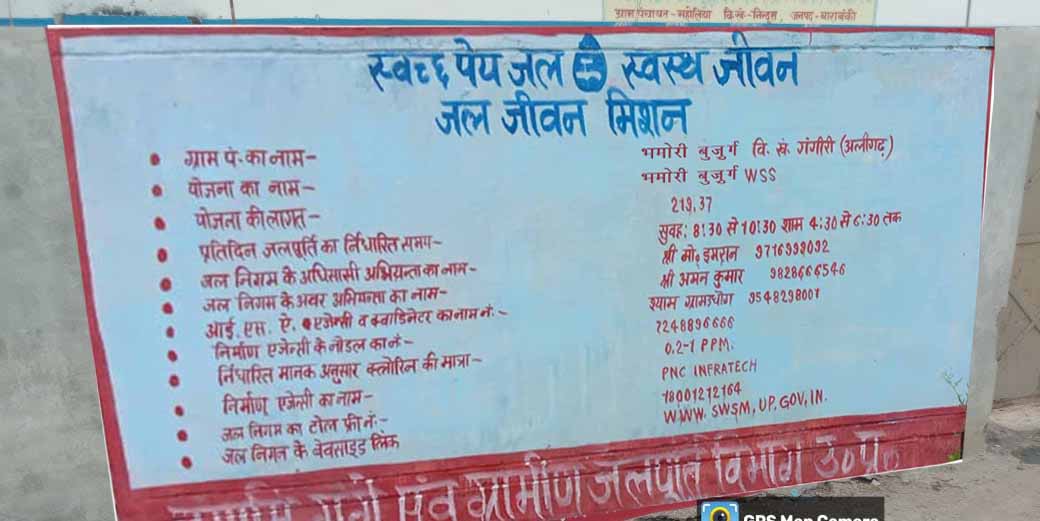 ग्राम पंचायत-महोलिया वि.खं.-निन्दूरा, जनपद-बाराबंकी
स्वच्छ पेय जल स्वस्थ जीवन
जल जीवन मिशन
ग्राम पं. का नाम- भमोरी बुजुर्ग वि. खं. गंगीरी (अलीगढ़)
योजना का नाम- भमोरी बुजुर्ग WSS
योजना की लागत- 219.37
प्रतिदिन जलपूर्ति का र्निधारित समय- सुबह: 8:30 से 10:30 शाम 4:30 से 6:30 तक
जल निगम के अधिसासी अभियन्ता का नाम- श्री मो. इमरान 9716998092
जल निगम के अवर अभियन्ता का नाम- श्री अमन कुमार 9828666546
आई. एस. ऐ. एजेन्सी व क्वाडिनेटर का नाम नं.- श्याम ग्रामउधोग 9548298001
निर्माण एजेन्सी के नोडल का नं- 7248896666
र्निधारित मानक अनुसार क्लोरिन की मात्रा- 0.2-1 PPM.
निर्माण एजेन्सी का नाम- PNC INFRATECH
जल निगम का टोल फ्री नं.- 18001212164
जल निगम के वेबसाइड लिंक WWW. SWSM, UP. GOV, IN.
एंव ग्रामीण जलपूर्ति विभाग उ०प्र०
GPS Map Camera